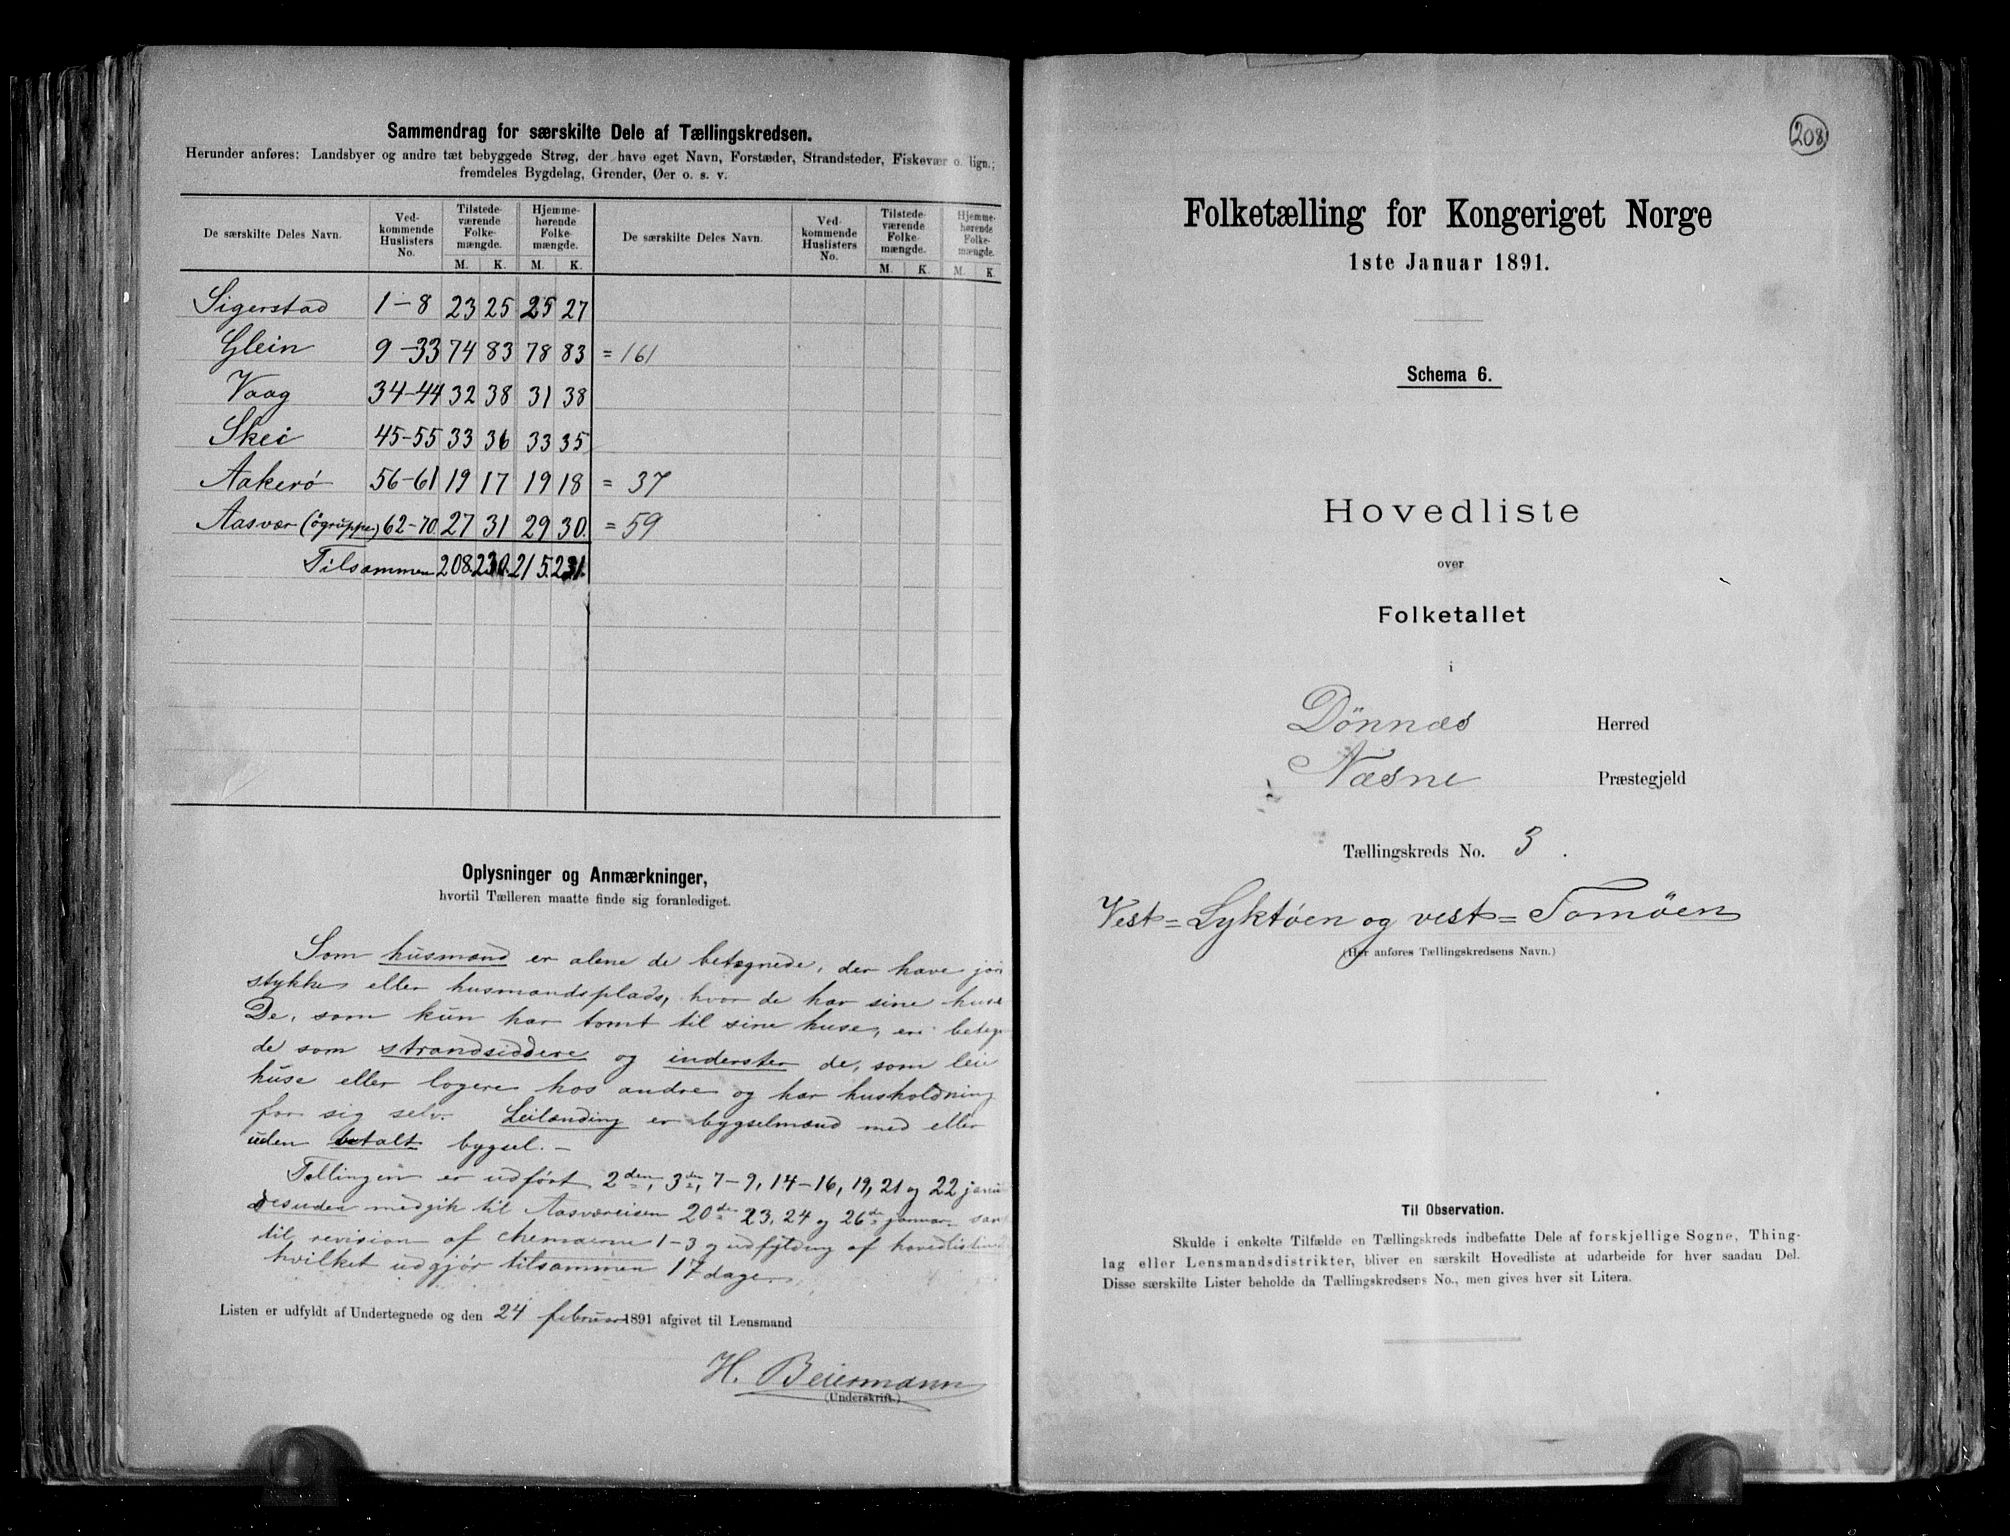 Sammendrag for særskilte Dele af Tællingskredsen.
Herunder anføres: Landsbyer og andre tæt bebyggede Strøg, der have eget Navn, Forstæder, Strandsteder, Fiskevær o. lign.;
fremdeles Bygdelag, Grender, Øer o. s. v.
De særskilte Deles Navn. Ved-kommende Huslisters No. Tilstede-værende Folke-mængde. Hjemme-hørende Folke-mængde. De særskilte Deles Navn. Ved-kommende Huslisters No. Tilstede-værende Folke-mængde. Hjemme-hørende Folke-mængde.
M. K. M. K. M. K. M. K.
Sigerstad 1-8 23 25 25 27
Glein 9-33 74 83 78 83 = 161
Vaag 34-44 32 38 31 38
Skei 45-55 33 36 33 35
Aakerö 56-61 19 17 19 18 = 37
Aasvær (ögruppe) 62-70. 27 31 29 30. = 59
Tilsammen 208. 230. 215. 231.
Oplysninger og Anmærkninger,
hvortil Tælleren maatte finde sig foranlediget.
Som husmænd er alene de betegnede, der have jord
stykke eller husmandsplads, hvor de har sine huse
De, som kun har tomt til sine huse, er beteg
de som strandsiddere og inderster de, som leie
huse eller logere hos andre og har husholdning
for sig selv. Leilænding er bygselmænd med eller
uden betalt bygsel. -
Tellingen er udført 2den, 3de, 7-9, 14-16, 19, 21 og 22 janu
desuden medgik til Aasværeisen 20de 23, 24 og 26de januar samt
til revision af chemaerne 1-3 og udfylding af hovedlisten
hvilket udgjør tilsammen 17 dage.
Listen er udfyldt af Undertegnede og den 24 februar 1891 afgivet til Lensmand
H. Beiermann
(Underskrift.)
208
Folketælling for Kongeriget Norge
1ste Januar 1891.
Schema 6.
Hovedliste
over
Folketallet
i
Dönnæs Herred
Næsne Præstegjeld
Tællingskreds No. 3.
Vest=Lyktöen og vest=Tomöen
(Her anføres Tællingskredsens Navn.)
Til Observation.
Skulde i enkelte Tilfælde en Tællingskreds indbefatte Dele af forskjellige Sogne, Thing-
lag eller Lensmandsdistrikter, bliver en særskilt Hovedliste at udarbeide for hver saadan Del.
Disse særskilte Lister beholde da Tællingskredsens No., men gives hver sit Litera.